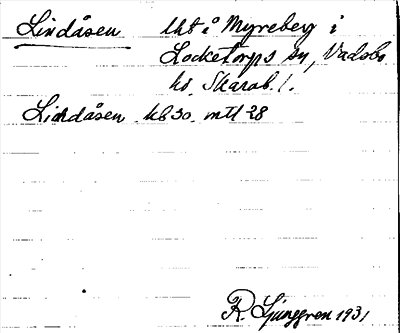 Lindåsen lht å Myreberg i
Locketorps sn, Vadsbo
hd. Skarab. l.
Lindåsen kb 30. mtl 28
R. Ljunggren 1931